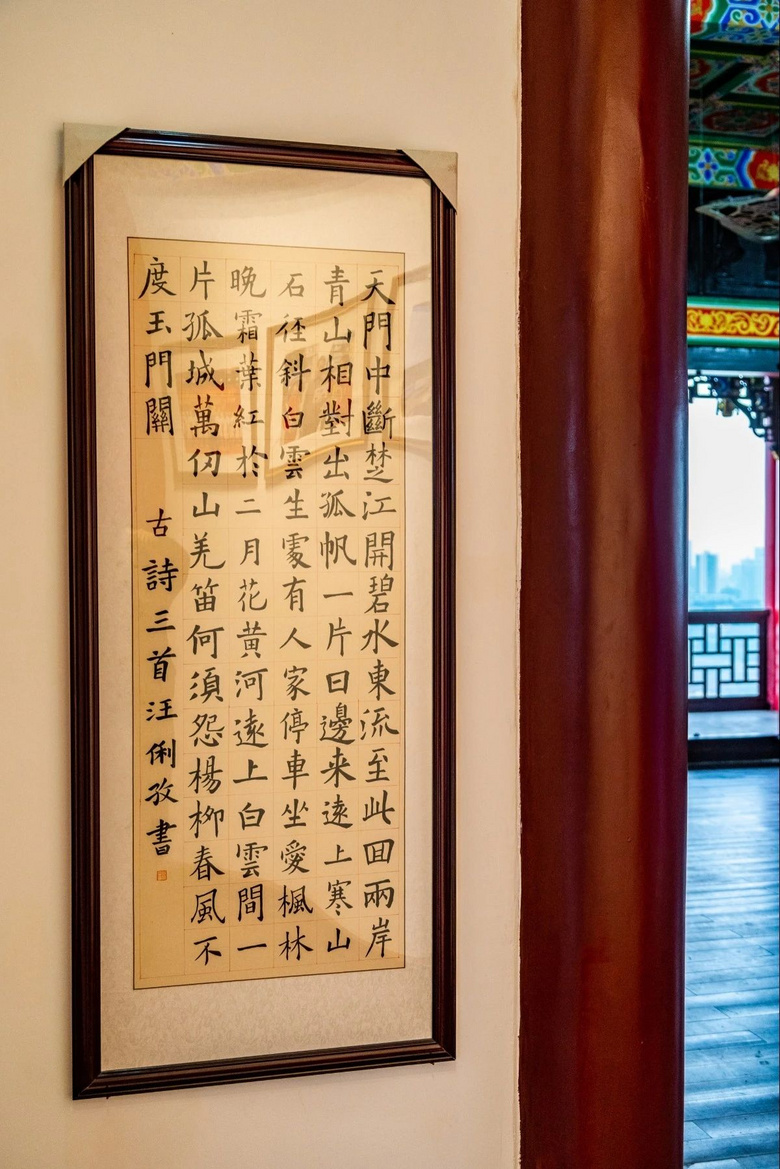 天門中斷楚江開碧水東流至此回兩岸
青山相對出孤帆一片日邊来遠上寒山
石徑斜白雲生處有人家停車坐愛楓林
晚霜葉紅於二月花黃河遠上白雲間一
片孤城萬仞山羌笛何須怨楊柳春風不
度玉門關
古詩三首汪俐孜書